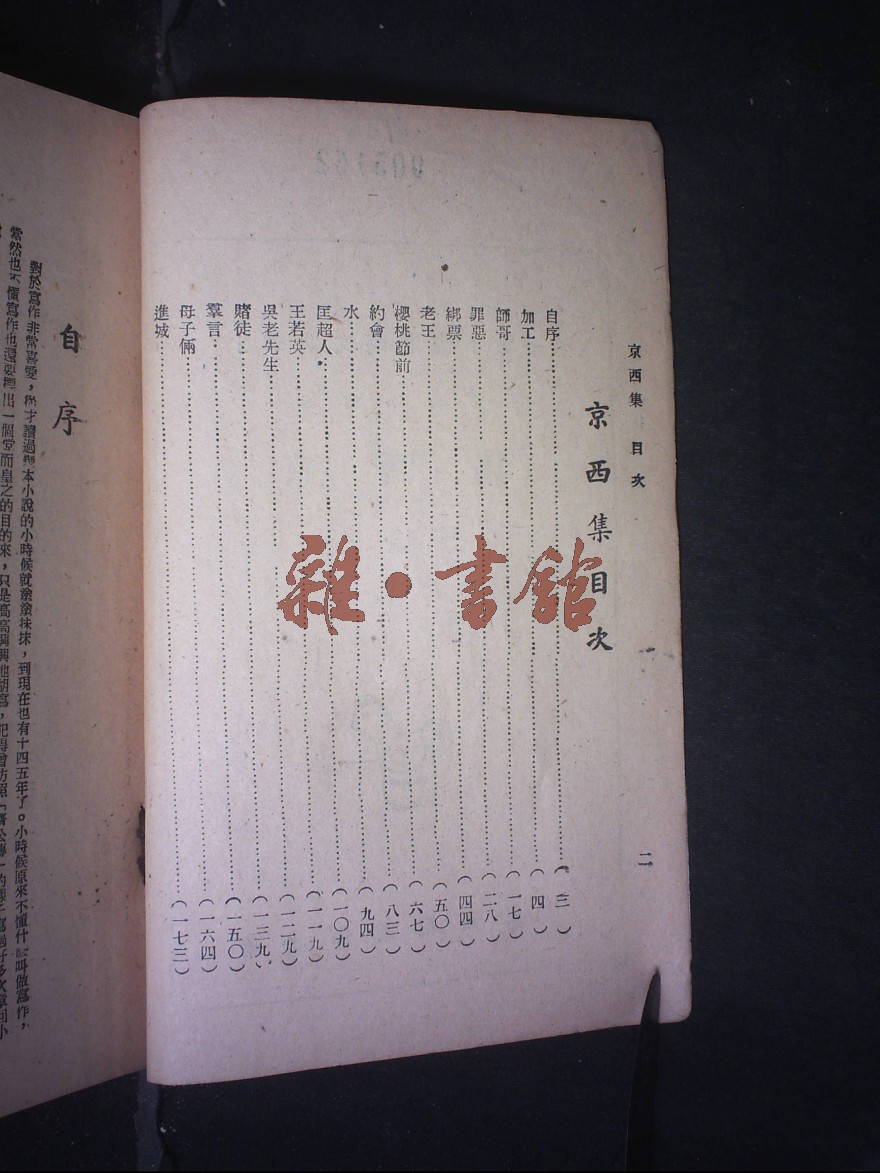 京西集 目次
二
京西集目次
自序……(三)
加工……(四)
師哥……(一七)
罪惡……(二八)
綁票……(四四)
老王……(五〇)
櫻桃節前……(六七)
約會……(八三)
水……(九四)
匡超人……(一〇九)
王若英……(一一九)
吳老先生……(一二九)
賭徒……(一三九)
羣言……(一五〇)
母子倆……(一六四)
進城……(一七三)
雜·書館
自序
對於寫作非常喜愛,從才讀過幾本小說的小時候就塗塗抹抹,到現在也有十四五年了。小時候原來不懂什麼叫做寫作,
當然也不懂寫作也還要舉出一個堂而皇之的目的來,只是高高興興地胡寫,記得曾仿照「濟公傳」的樣子寫過好多次章回小